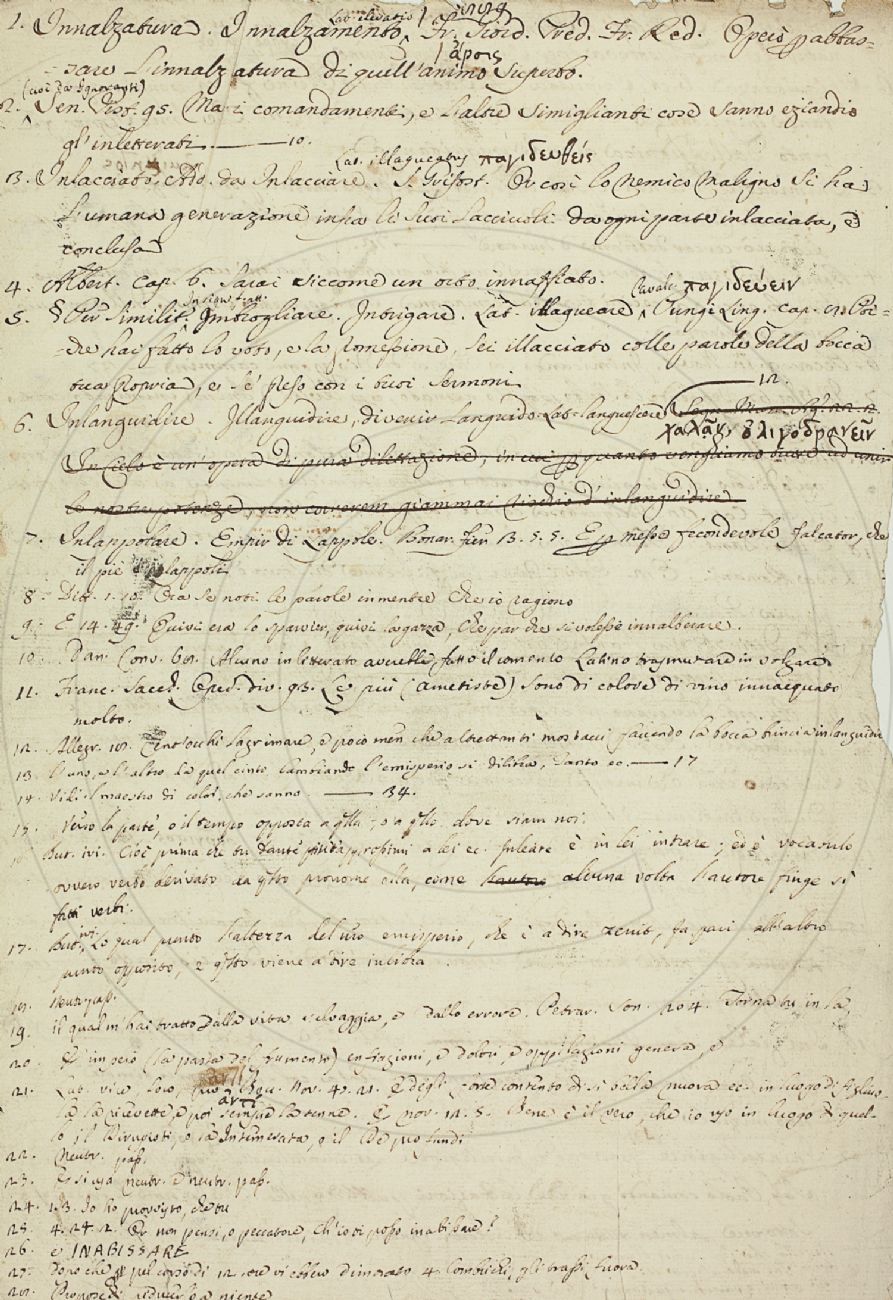 1. Innalzatura. Innalzamento. Lat. elevatio ἄρσις Fr. Giord. Pred. Fr. Red. Opera p abbas=
sare l'innalzatura di quell'animo superbo.
(cioè da Ignoranti)
2. Sen. Pist. 95. Ma i comandamenti, e l'altre simiglianti cose sanno eziandio
gl'inletterati. 10.
Lat. illaqueatus παγιδευθείς
3. Inlacciato. Add. da Inlacciare. S. Grisost. Or così lo nemico maligno si ha
l'umana generazione infra li suoi lacciuoli da ogni parte inlacciata, e
conclusa
4. Albert. cap. 6. Sarai siccome un orto innaffiato.
5. § Per similit. Imbrogliare. Intrigare. Lat. illaqueare παγιδεύειν Cavalc. Pungil. ling. cap. Poi=
che hai fatto lo voto, e la promessione, sei illacciato colle parole della bocca
tua propria, e se' preso con i tuoi sermoni
12.
6. Inlanguidire. Illanguidire, divenir languido. Lat. languescere
χαλᾶν, ὀλιγοδρανεῖν
In Cielo è un'opera di pura dilettazione, in cui p quanto venghiamo ad unir
le nostre potenze, non correrem giammai rischio d'inlanguidire
7. Inlappolare. Empier di Lappole. Buonar. Fier. 3. 5. 5. E p messe fecondevole falcator, che
il piè lappoli
8. Ditt. 1. 10. Ora se noti le parole inmentre che io ragiono
9. E 14. 49. Quivi era lo sparvier, quivi la gazza, che par che si volesse innalberare.
10. Dan. Conv. Alcuno inletterato averebbe fatto il comento Latino trasmutare in volgare
11. Franc. Sacch. Oper. div. 93. Le più (ametiste) sono di colore di vino innacquato
molto.
12. Allegr. Cent'occhi lagrimare, e poco men che altrettanti mostacci facendo la bocca bieca inlanguidir
13. l'uno, e l'altro da quel cinto cambiando l'emisperio si dilibra, Tanto ec. 17
14. Vidi 'l maestro di color, che sanno 34.
15. Verso la parte, o il tempo opposta a qlla, o a qllo dove siam noi.
16. But. ivi. Cioè prima che tu Dante ti prossimi a lei ec. Inleare è in lei intrare; ed è vocabulo
ovvero verbo derivato da qsto pronome ella, come alcuna volta l'autore finge sì
fatti verbi.
17. But. ivi. Lo qual punto l'altezza del suo emisperio, che è a dire zenit, fa pari all'altro
punto opposito, e qsto viene a dire inlibra.
18. Neutr. pass.
19. il qual m'hai tratto dalla vita selvaggia, e dallo errore. Petrar. Son. 204. Torna tu in là,
20. E' imperò (la pasta del frumento) enfiagioni, e dolori, e oppilazioni genera, e
21. Lat. vice, loco, Nov. 47. 21. E degli forte contento di sì bella nuova ec. in luogo di figliuo-
la la ricevette, e poi sempre la tenne. E nov. 12. 5. Bene è il vero, che io uso in luogo di quel-
lo il Dirupisti, o la Intemerata, o il De profundi
22. Neutr. pass.
23. E si usa neutr. e neutr. pass.
24. 13. Io ho provveduto, che tu
25. 4. 24. 2. Or non pensi, o peccatore, ch'io ti posso inabissare?
26. e INABISSARE
27. Dopo che pel corso di 12 ore vi ebber dimorato 4. lombrichi, gli trassi fuora.
28. Propose di riducerla a niente